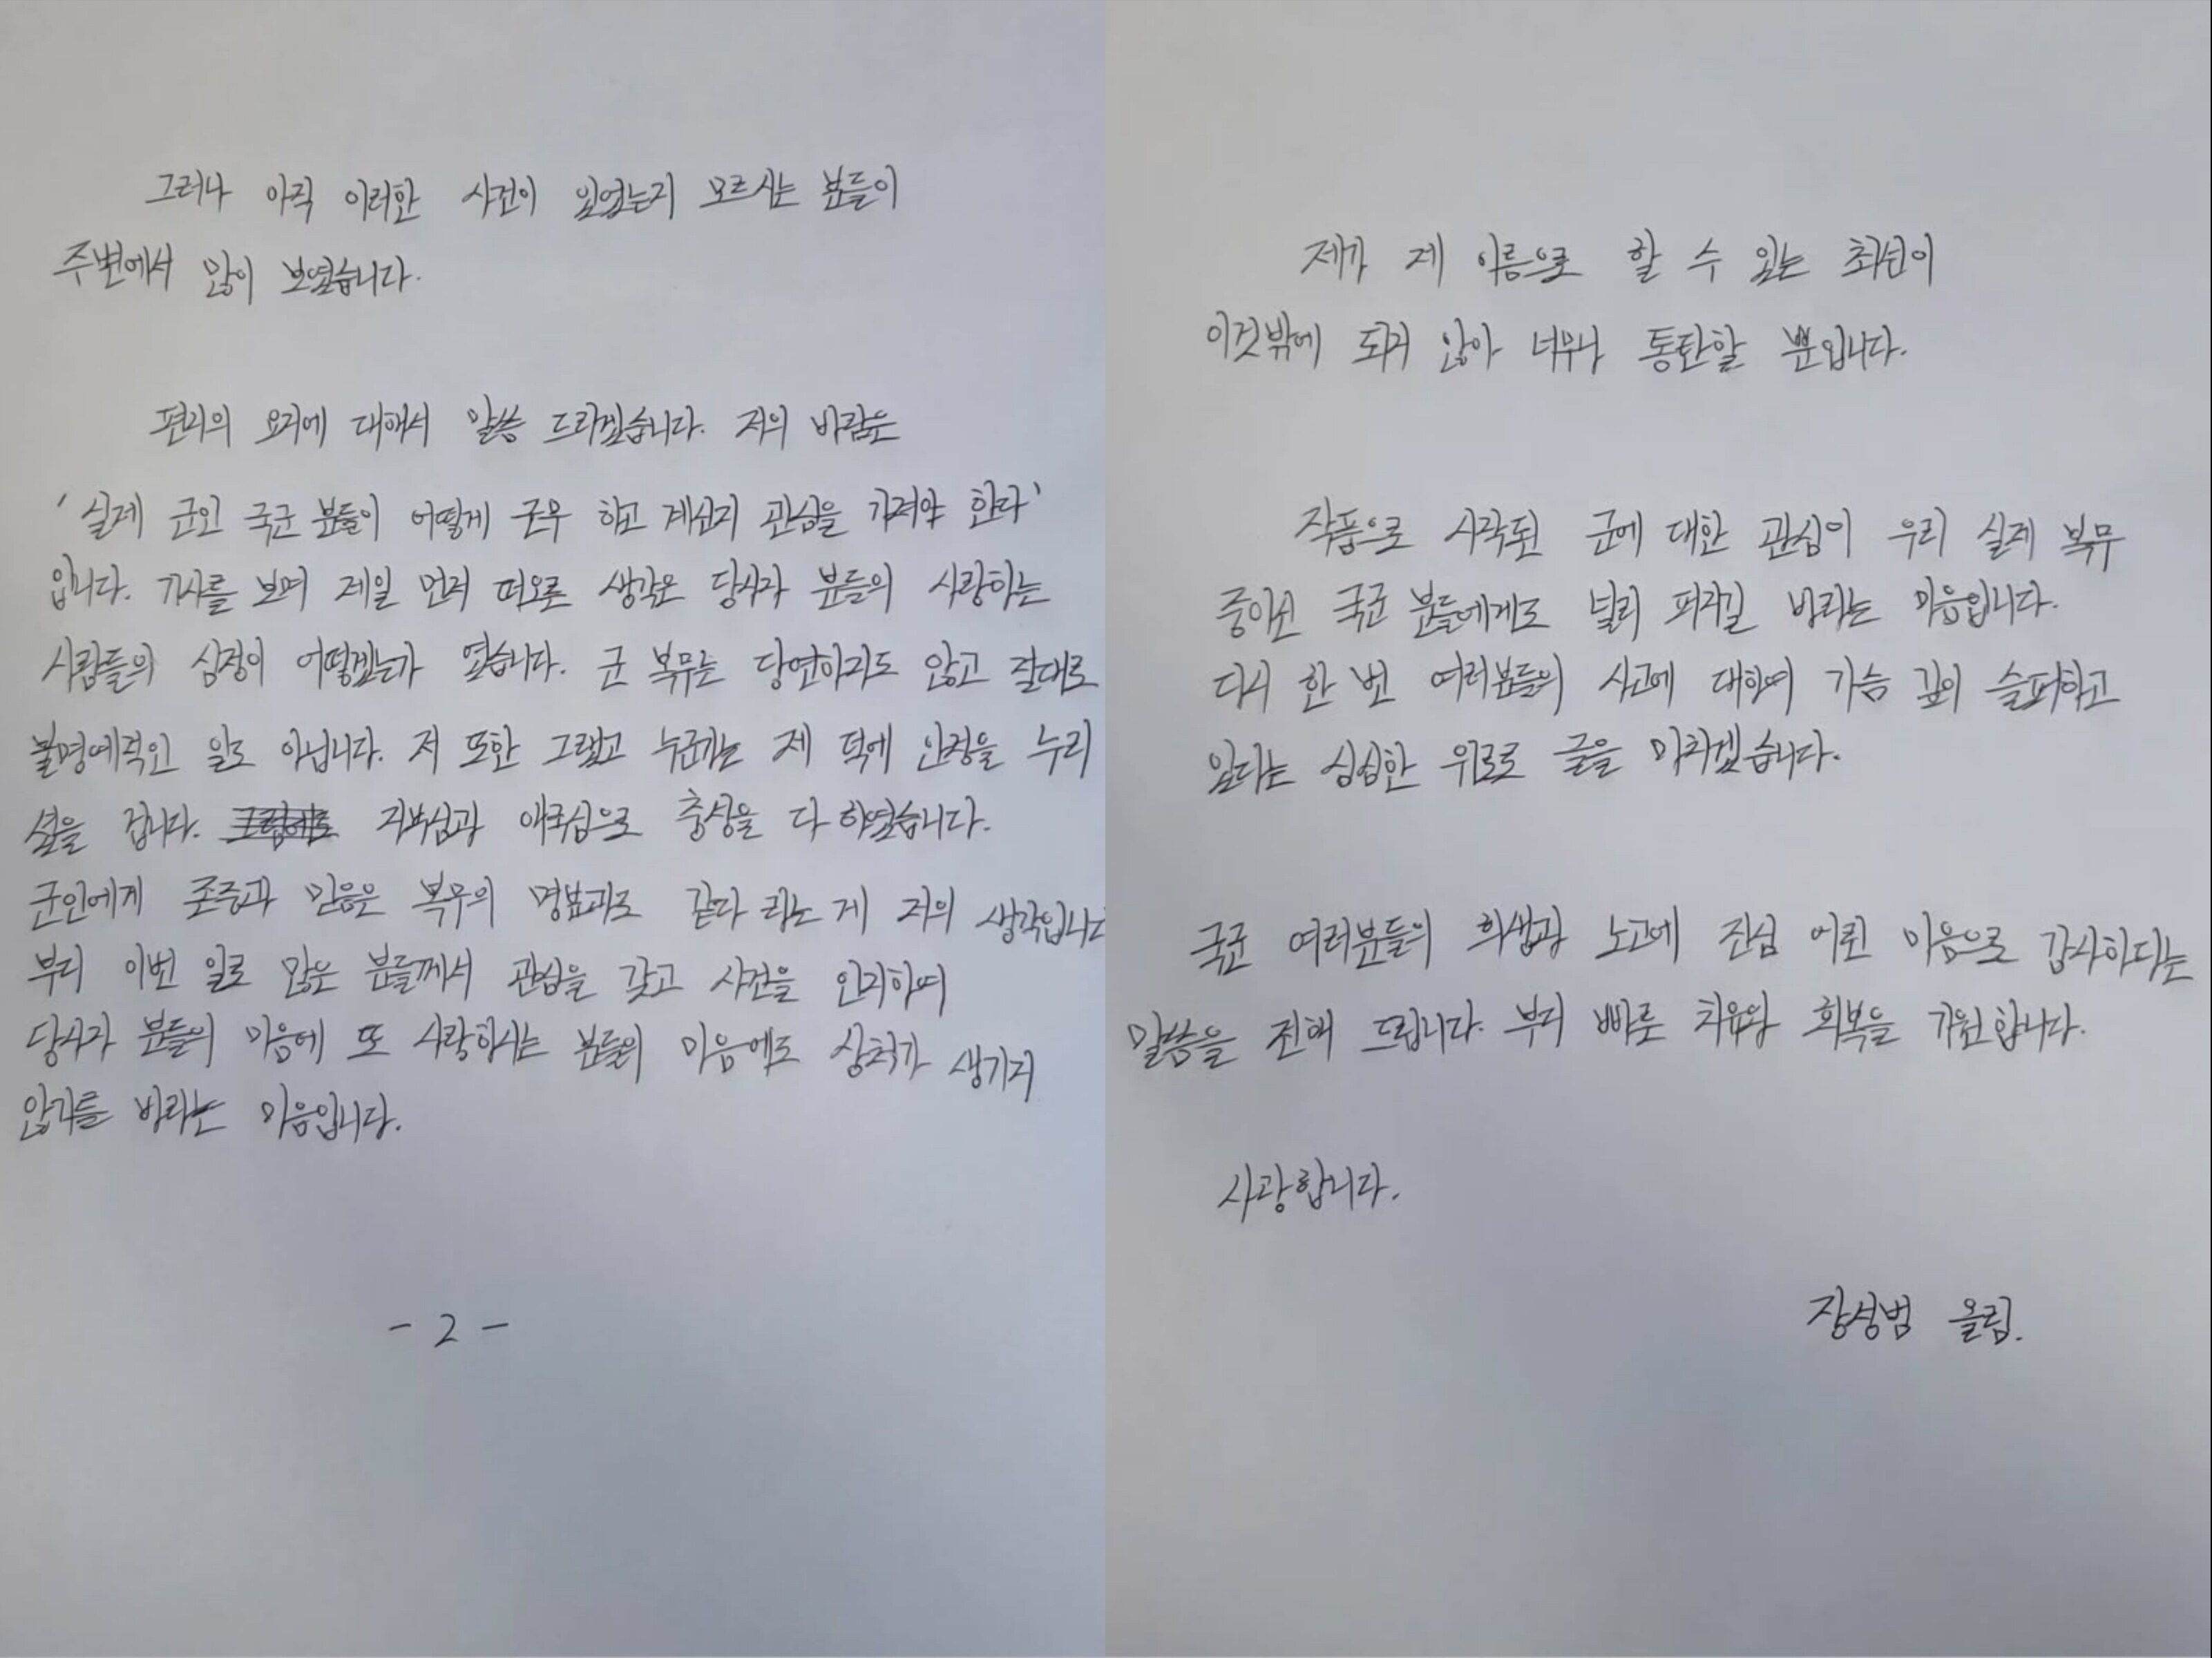 그러나 아직 이러한 사건이 있었는지 모르시는 분들이
주변에서 많이 보였습니다.
편지의 요지에 대해서 말씀 드리겠습니다. 저의 바람은
'실제 군인 국군 분들이 어떻게 근무 하고 계신지 관심을 가져야 한다'
입니다. 기사를 보며 제일 먼저 떠오른 생각은 당사자 분들의 사랑하는
사람들의 심정이 어떻겠는가 였습니다. 군 복무는 당연하지도 않고 절대로
불명예적인 일도 아닙니다. 저 또한 그랬고 누군가는 제 덕에 안정을 누리
셨을 겁니다. 자부심과 애국심으로 충성을 다 하였습니다.
군인에게 존중과 믿음은 복무의 명분과도 같다 라는 게 저의 생각입니다
부디 이번 일로 많은 분들께서 관심을 갖고 사건을 인지하여
당사자 분들의 마음에 또 사랑하시는 분들의 마음에도 상처가 생기지
않기를 바라는 마음입니다.
- 2 -
제가 제 이름으로 할 수 있는 최선이
이것밖에 되지 않아 너무나 통탄할 뿐입니다.
작품으로 시작된 군에 대한 관심이 우리 실제 복무
중이신 국군 분들에게도 널리 퍼지길 바라는 마음입니다.
다시 한 번 여러분들의 사고에 대하여 가슴 깊이 슬퍼하고
있다는 심심한 위로로 글을 마치겠습니다.
국군 여러분들의 희생과 노고에 진심 어린 마음으로 감사하다는
말씀을 전해 드립니다. 부디 빠른 치유와 회복을 기원합니다.
사랑합니다.
장성범 올림.